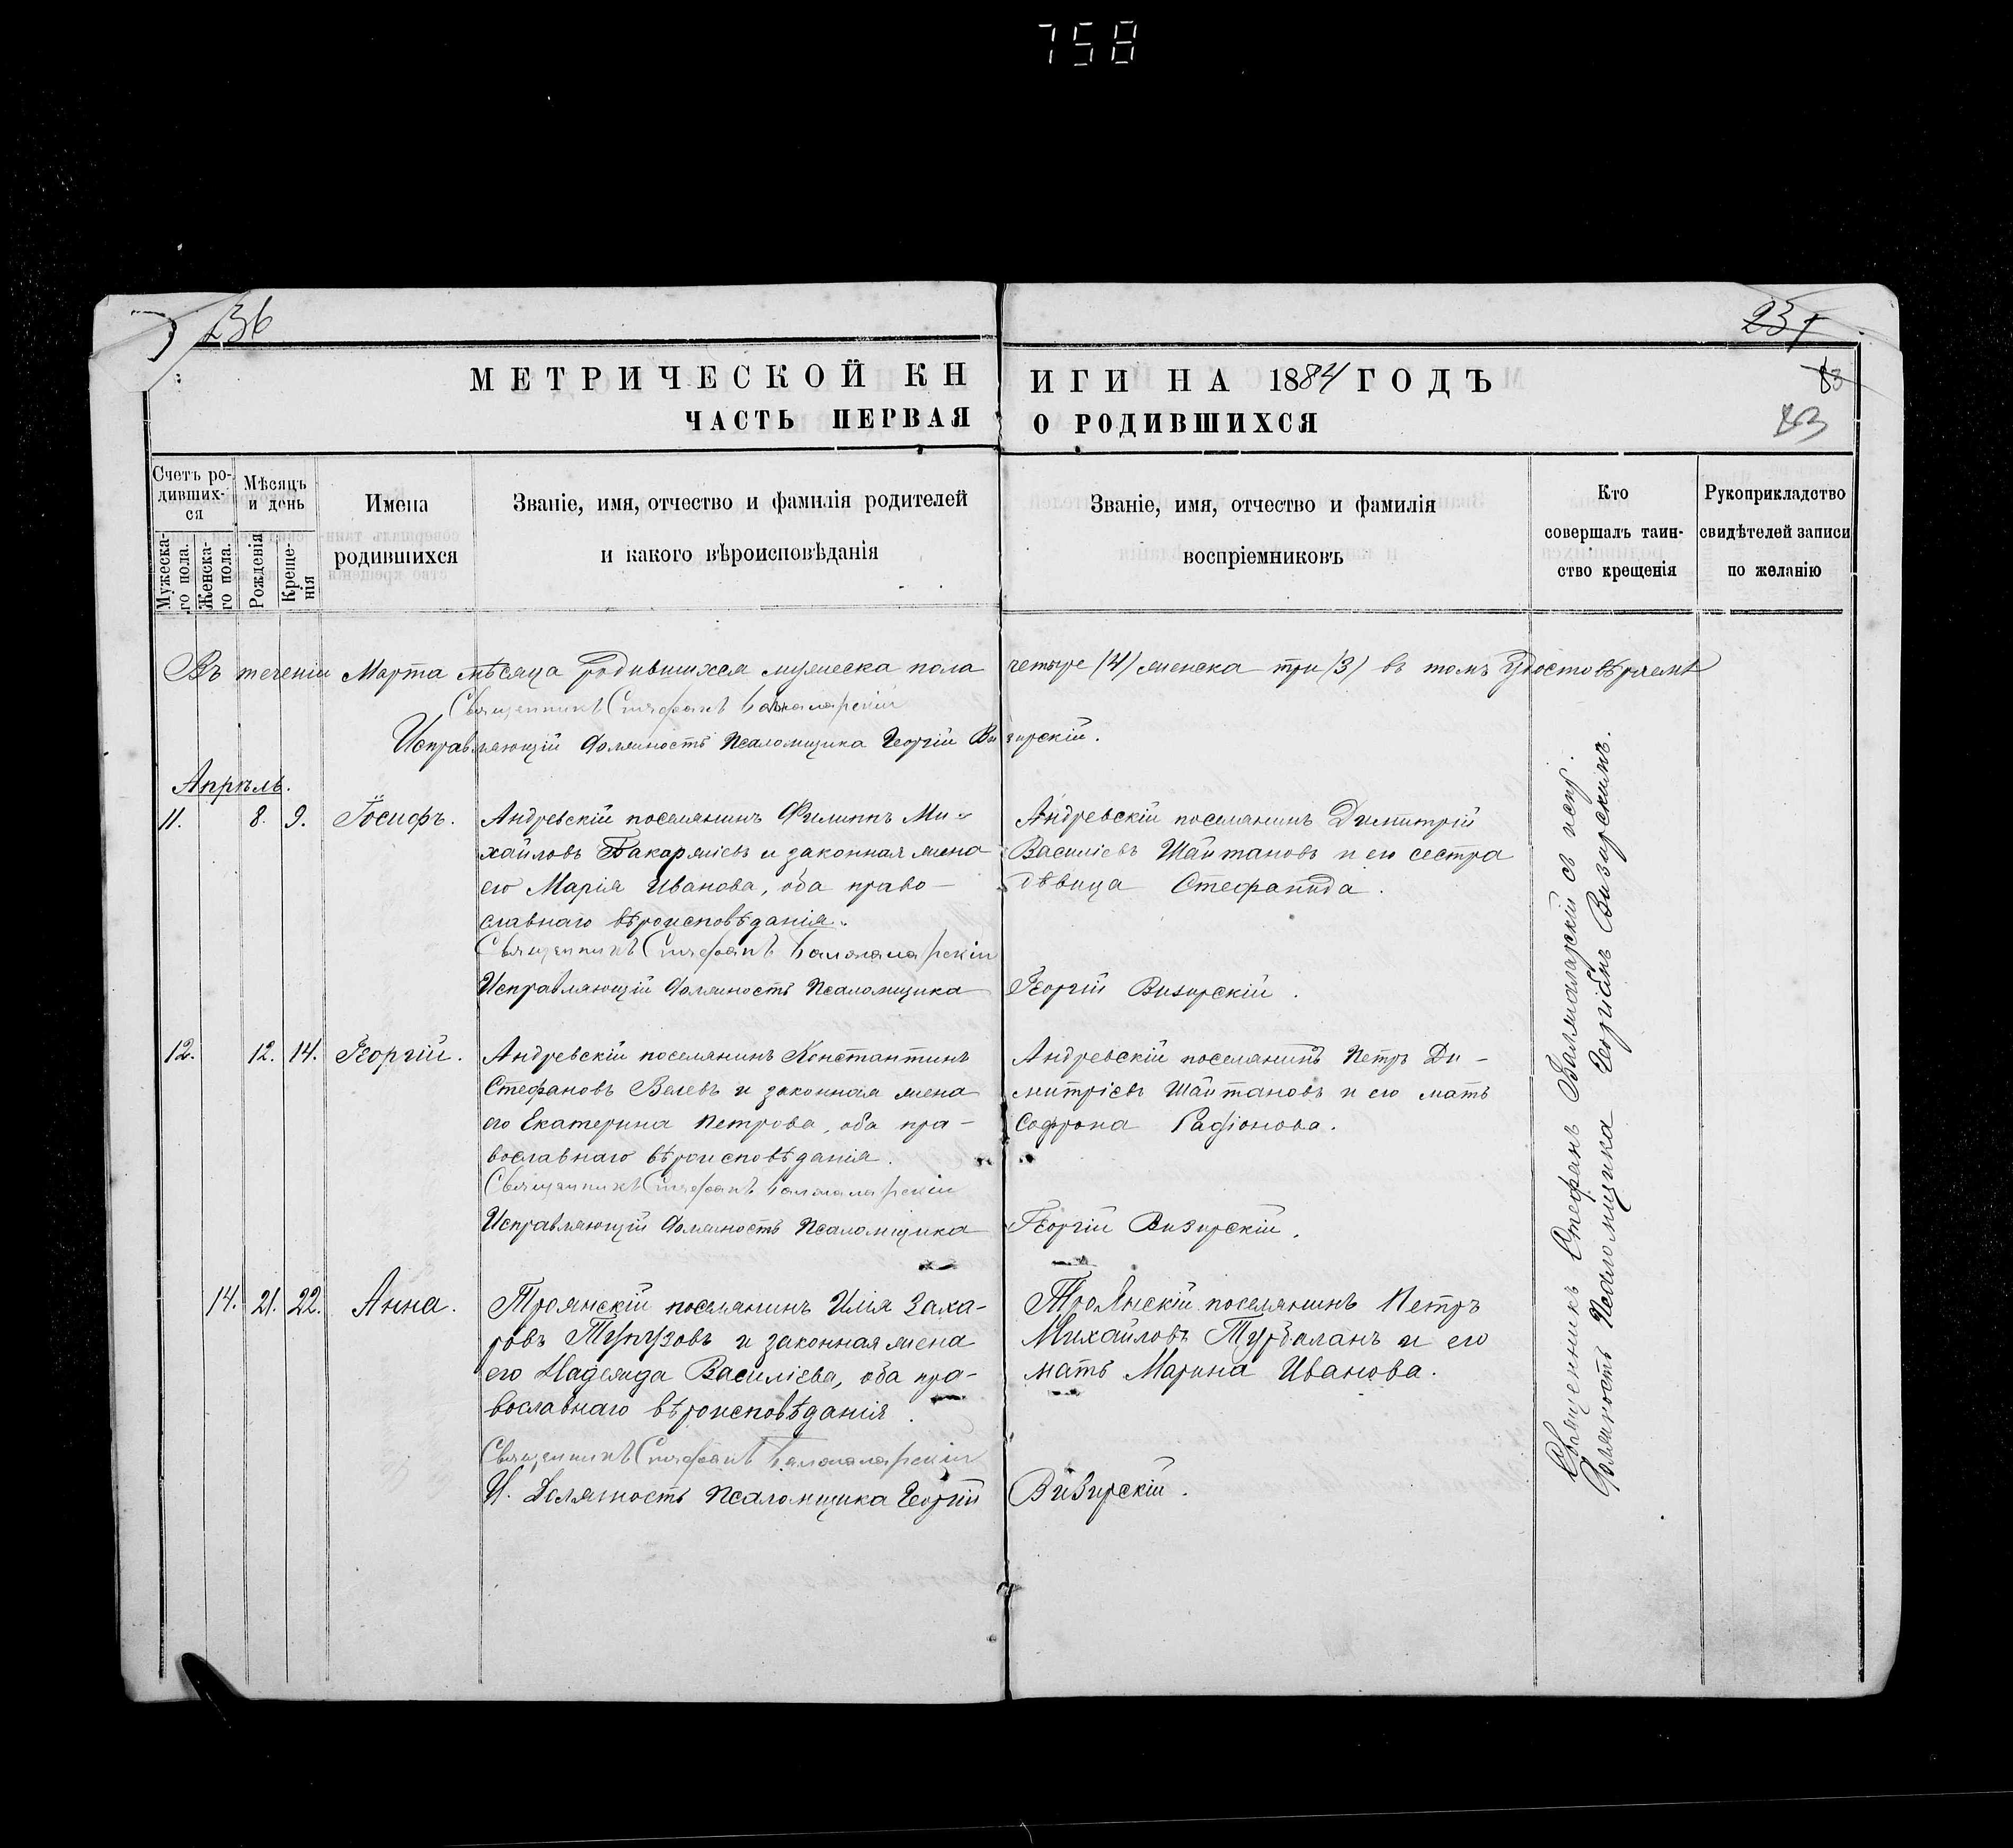 758
236
237
МЕТРИЧЕСКОЙ КНИГИ НА 1884 ГОДЪ
83
ЧАСТЬ ПЕРВАЯ О РОДИВШИХСЯ
83
Счетъ родившихся
Мужеска-го пола.
Женска-го пола.
Мѣсяцъ и день
Рожденія
Креще-нія
Имена родившихся
Званіе, имя, отчество и фамилія родителей
и какого вѣроисповѣданія
Званіе, имя, отчество и фамилія
воспріемниковъ
Кто
совершалъ таин-
ство крещенія
Рукоприкладство
свидѣтелей записи
по желанію
Въ теченіи Марта мѣсяца родившихся мужеска пола четыре (4) женска три (3) въ томъ удостовѣряемъ
Священникъ Стефанъ
Исправляющій должность Псаломщика Георгій Визирскій.
Апрѣль.
11. 8. 9. Іосифъ.
Андревскій поселянинъ Филиппъ Ми-
хайловъ и законная жена
его Марія Иванова, оба право-
славнаго вѣроисповѣданія.
Священникъ Стефанъ
Исправляющій должность Псаломщика Георгій Визирскій.
Андревскій поселянинъ Димитрій
Василіевъ Шайтановъ и его сестра
дѣвица Стефанида.
12. 12. 14. Георгій.
Андревскій поселянинъ Константинъ
Стефановъ Велевъ и законная жена
его Екатерина Петрова, оба пра-
вославнаго вѣроисповѣданія.
Священникъ Стефанъ
Исправляющій должность Псаломщика Георгій Визирскій.
Андревскій поселянинъ Петръ Ди-
митріевъ Шайтановъ и его мать
Софрона
14. 21. 22. Анна.
Троянскій поселянинъ Илія Заха-
ровъ и законная жена
его Надежда Василіева, оба пра-
вославнаго вѣроисповѣданія.
Священникъ Стефанъ
И. Должность Псаломщика Георгій Визирскій.
Троянскій поселянинъ Петръ
Михайловъ и его
мать Марина Иванова.
Священникъ Стефанъ съ испр.
должность Псаломщика Георгіемъ Визирскимъ.